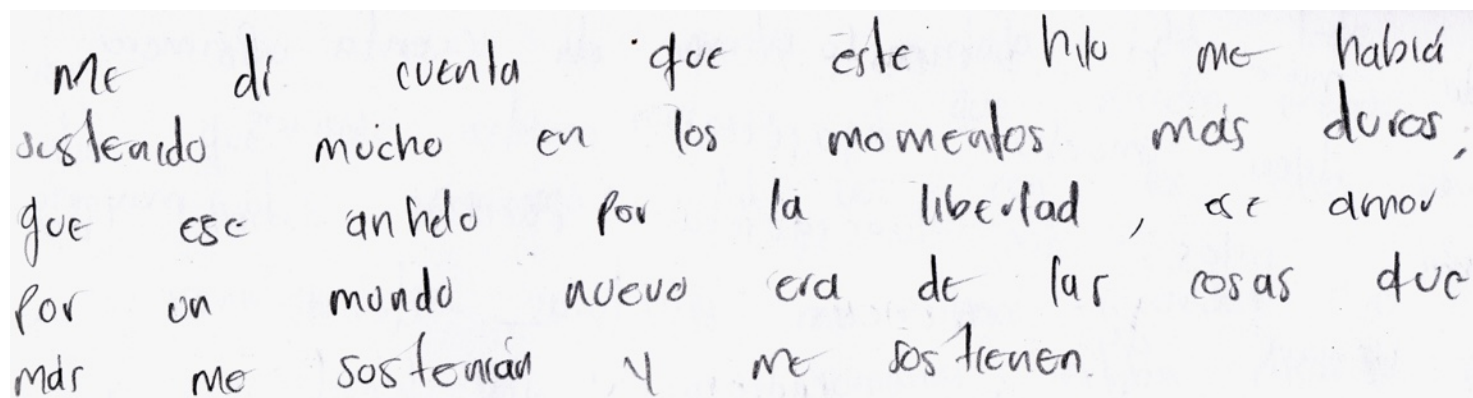 Me di cuenta que este hilo me había
sostenido mucho en los momentos más duros,
que ese anhelo por la libertad, ese amor
por un mundo nuevo era de las cosas que
más me sostenían y me sostienen.